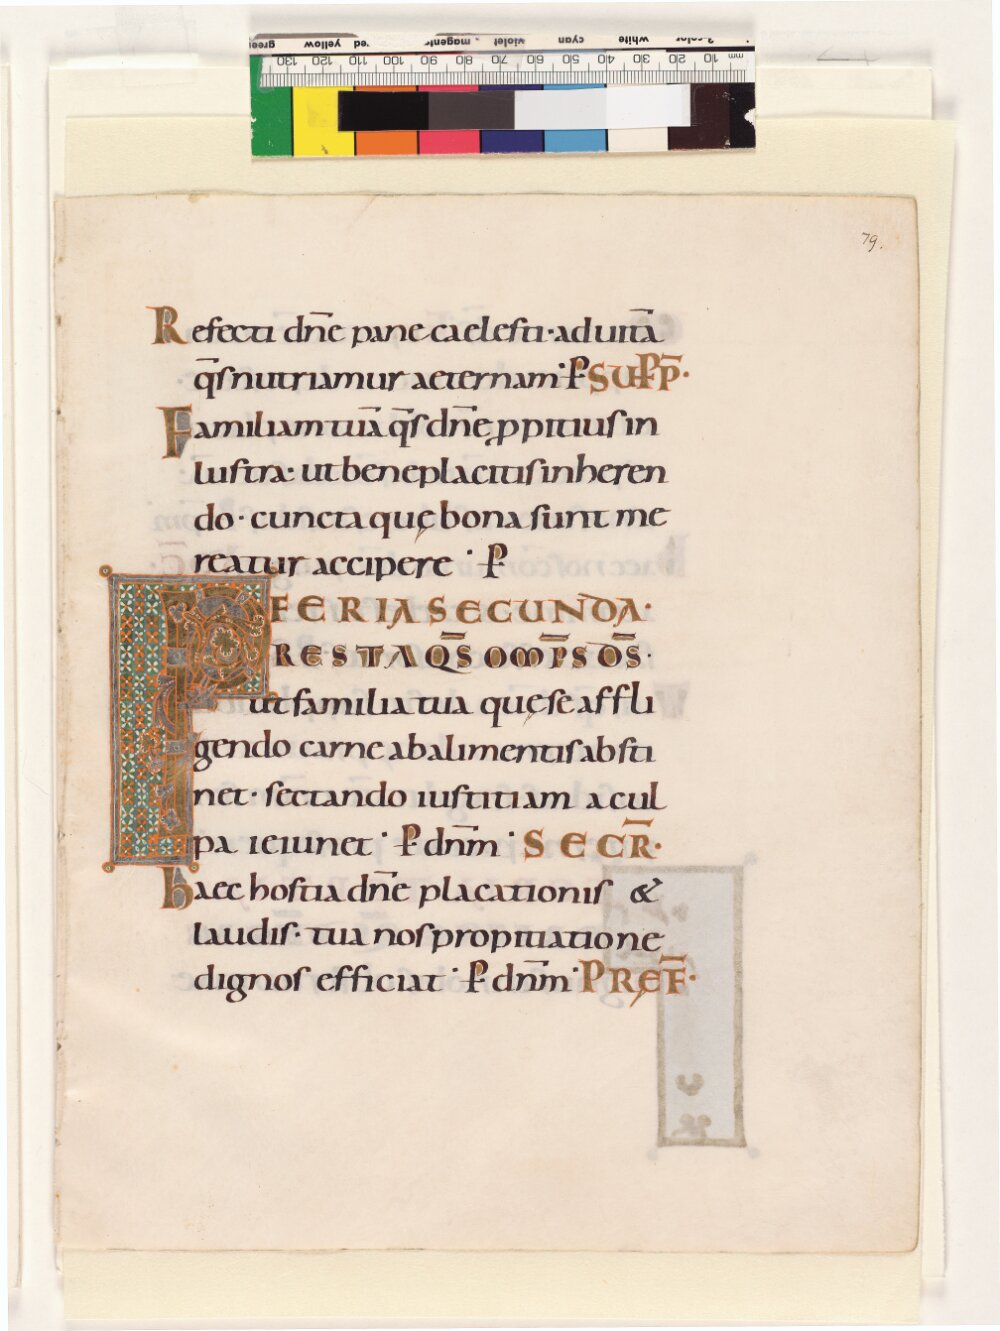 green yellow red magenta violet cyan white 3-color
130 120 110 100 90 80 70 60 50 40 30 20 10 mm
79.
Refecti dñe pane caelesti· ad uitā
q̄s nutriamur aeternam· ꝑ SUPP̄·
Familiam tuā q̄s dñe ꝓpitius in
lustra· ut beneplacitis inheren
do· cuncta quę bona sunt me
reatur accipere · ꝑ
FERIA SECUNDA·
PRESTA QS̄ OMP̄S D̄S·
ut familia tua quę se affli
gendo carne ab alimentis absti
net· sectando iustitiam a cul
pa ieiunet · ꝑ dñm · SECR̄·
Haec hostia dñe placationis &
laudis· tua nos propitiatione
dignos efficiat · ꝑ dñm · PRĘF̄·